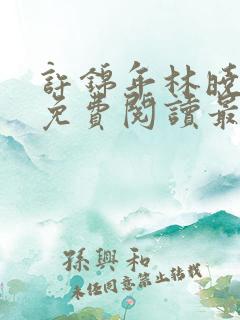 許錦年林曉
免費閱讀最
孫興和
未经同意禁止转载